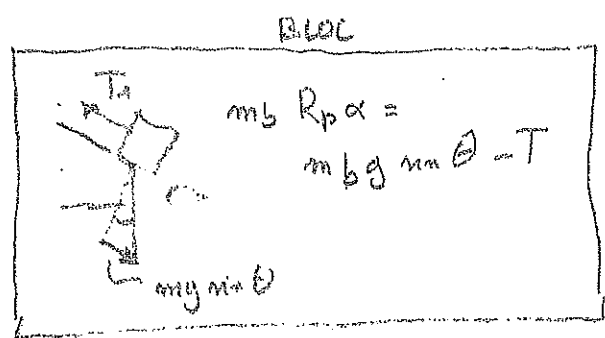 BLOC
T₁
m_b R_p α =
m_b g sin θ - T
mg sin θ